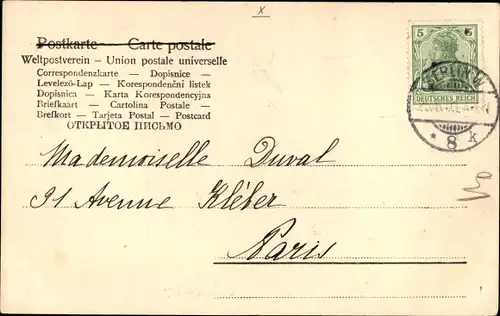 x
Postkarte — Carte postale
Weltpostverein – Union postale universelle
Correspondenzkarte — Dopisnice —
Levelező-Lap — Korespondenční listek
Dopisnica — Karta Korespondencyjna
Briefkaart — Cartolina Postale —
Brefkort — Tarjeta Postal — Postcard
ОТКРЫТОЕ ПИСЬМО
5 5
DEUTSCHES REICH
BERLIN W.
* 8 k
Mademoiselle Duval
31 Avenue Kléber
Paris